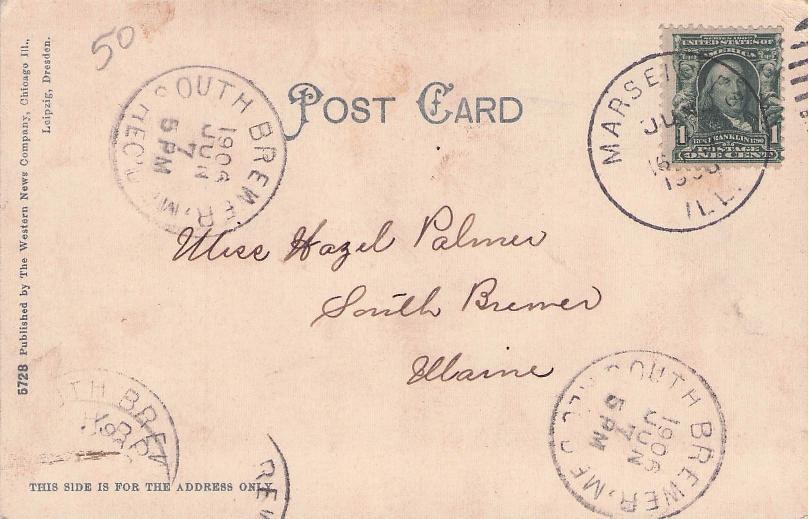 50
5728 Published by The Western News Company, Chicago Ill.,
Leipzig, Dresden.
SOUTH BREWER, ME.
REC'D
1906
JUN
7
5 PM
POST CARD
MARSEI
JUN
ILL.
SERIES 1902
UNITED STATES OF
AMERICA
1 1
FRANKLIN
POSTAGE
ONE CENT
Miss Hazel Palmer
South Brewer
Maine
SOUTH BREWER, ME.
REC'D
1906
JUN
7
5 PM
TH BREW
REW
THIS SIDE IS FOR THE ADDRESS ONLY.